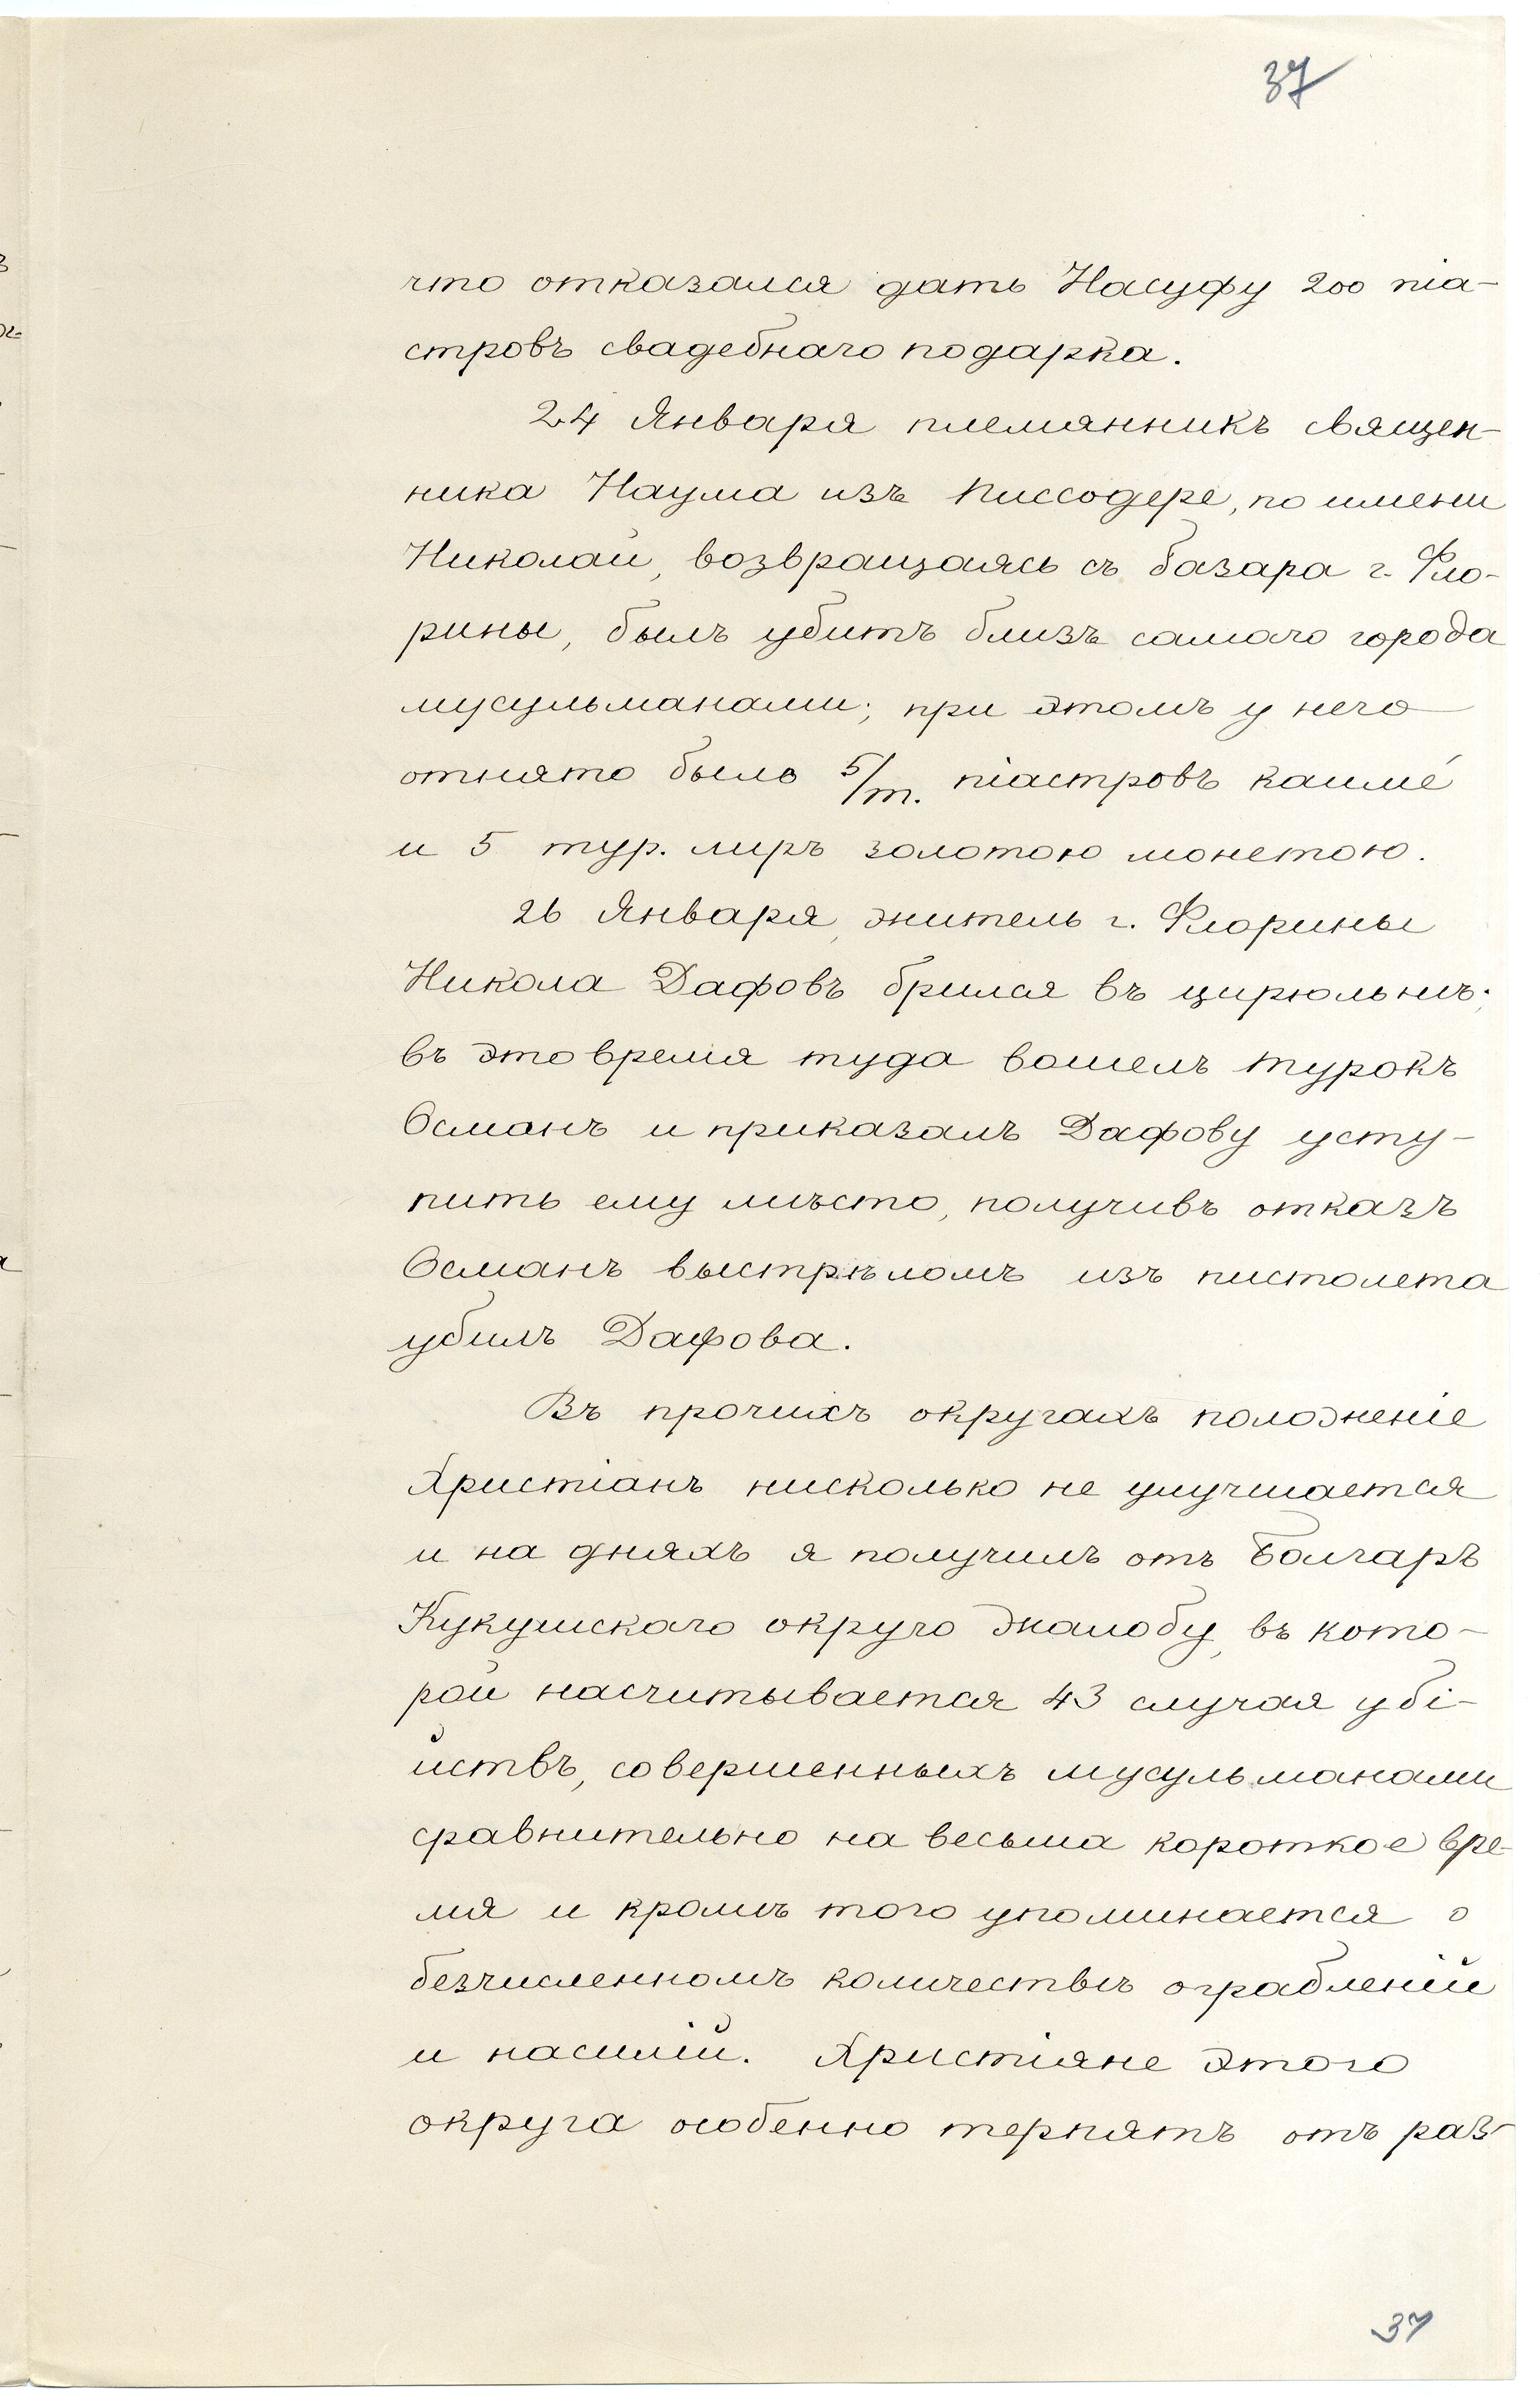 37
что отказался дать Насуфу 200 піа-
стровъ свадебнаго подарка.
24 Января племянникъ священ-
ника Наума изъ Писсодере, по имени
Николай, возвращаясь съ базара г. Фло-
рины, былъ убитъ близъ самаго города
мусульманами; при этомъ у него
отнято было 5/m. піастровъ каимé
и 5 тур. лиръ золотою монетою.
26 Января, житель г. Флорины
Никола Дафовъ брился въ цирюльнѣ;
въ это время туда вошелъ турокъ
Османъ и приказалъ Дафову усту-
пить ему мѣсто, получивъ отказъ
Османъ выстрѣломъ изъ пистолета
убилъ Дафова.
Въ прочихъ округахъ положеніе
Христіанъ нисколько не улучшается
и на дняхъ я получилъ отъ Болгаръ
Кукушскаго округа жалобу, въ кото-
рой насчитывается 43 случая убі-
йствъ, совершенныхъ мусульманами
сравнительно на весьма короткое вре-
мя и кромѣ того упоминается о
безчисленномъ количествѣ ограбленій
и насилій. Христіяне этого
округа особенно терпятъ отъ раз-
37